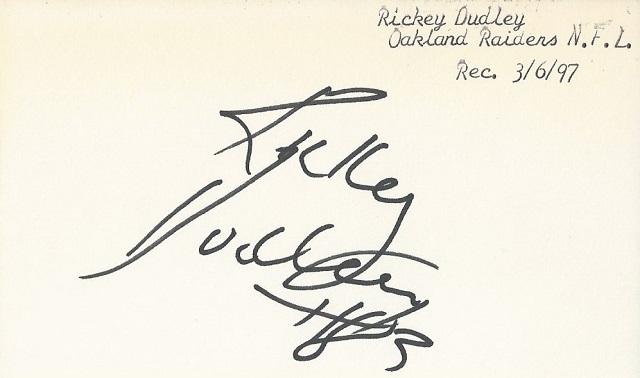 Rickey Dudley
Oakland Raiders N.F.L.
Rec. 3/6/97
Rickey
Dudley
#83